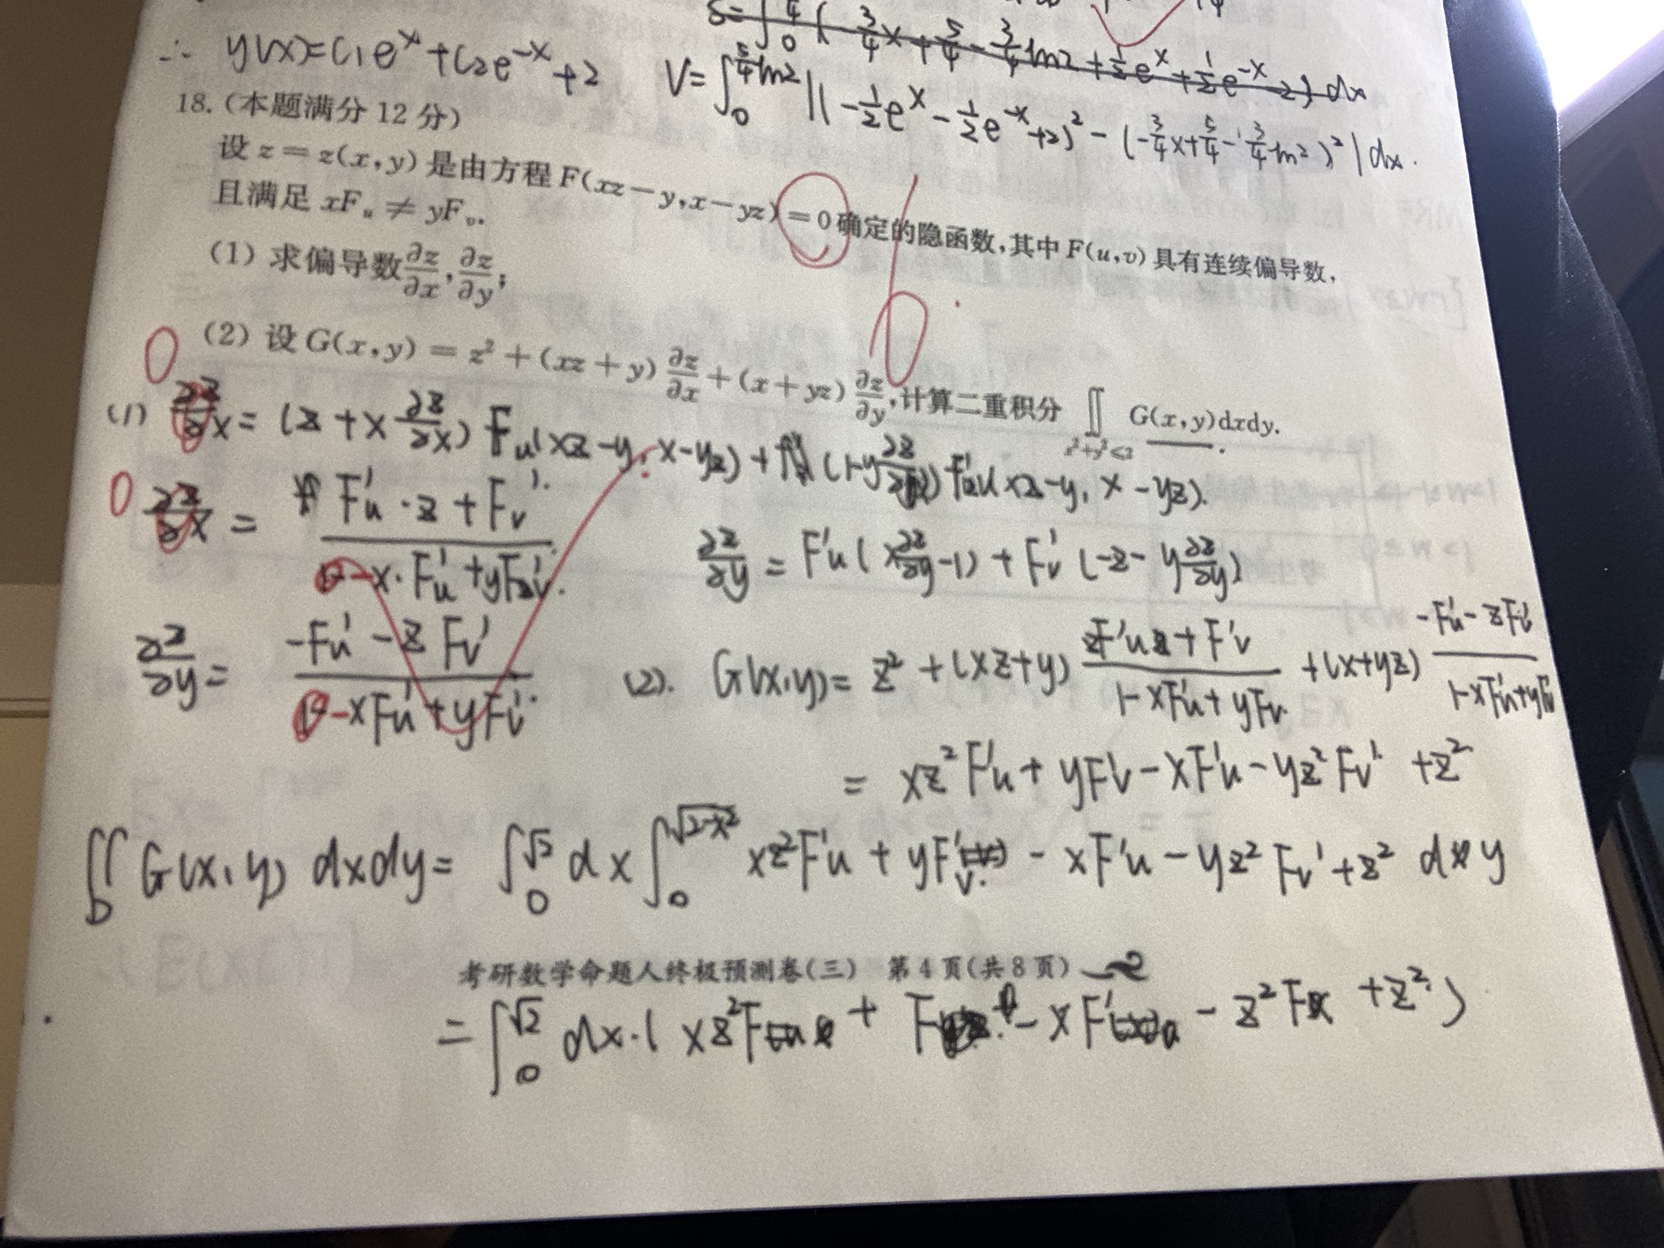 ∴ y(x)=C₁eˣ+C₂e⁻ˣ+2
V=∫₀^{5/4 ln2}|(-1/2eˣ-1/2e⁻ˣ+2)²-(-3/4x+5/4-3/4ln2)²|dx.
18.(本题满分12分)
设z=z(x,y)是由方程F(xz-y,x-yz)=0确定的隐函数,其中F(u,v)具有连续偏导数,
且满足xFᵤ≠yFᵥ.
(1)求偏导数∂z/∂x,∂z/∂y;
6.
(2)设G(x,y)=z²+(xz+y)∂z/∂x+(x+yz)∂z/∂y,计算二重积分∬_{x²+y²≤2}G(x,y)dxdy.
0
(1) ∂z/∂x=(z+x∂z/∂x)Fᵤ(xz-y,x-yz)+(1-y∂z/∂x)(xz-y,x-yz).
0
∂z/∂x=(F'ᵤ·z+F'ᵥ)/(1-x·F'ᵤ+yF'ᵥ).
∂z/∂y=F'u(x∂z/∂y-1)+F'ᵥ(-z-y∂z/∂y)
∂z/∂y=(-Fᵤ'-zFᵥ')/(1-xFᵤ'+yFᵥ').
(2). G(x,y)=z²+(xz+y)(zF'u+F'v)/(1-xF'u+yFv)+(x+yz)(-F'u-zF'v)/(1-xF'u+yF'v)
=xz²F'u+yF'v-xF'u-yz²Fv'+z²
∬_D G(x,y)dxdy=∫₀^{√2}dx∫₀^{√(2-x²)}xz²F'u+yF'v-xF'u-yz²Fv'+z² dy
考研数学命题人终极预测卷(三) 第4页(共8页)
=∫₀^{√2}dx·(xz²F+F-xF'-z²F+z²)